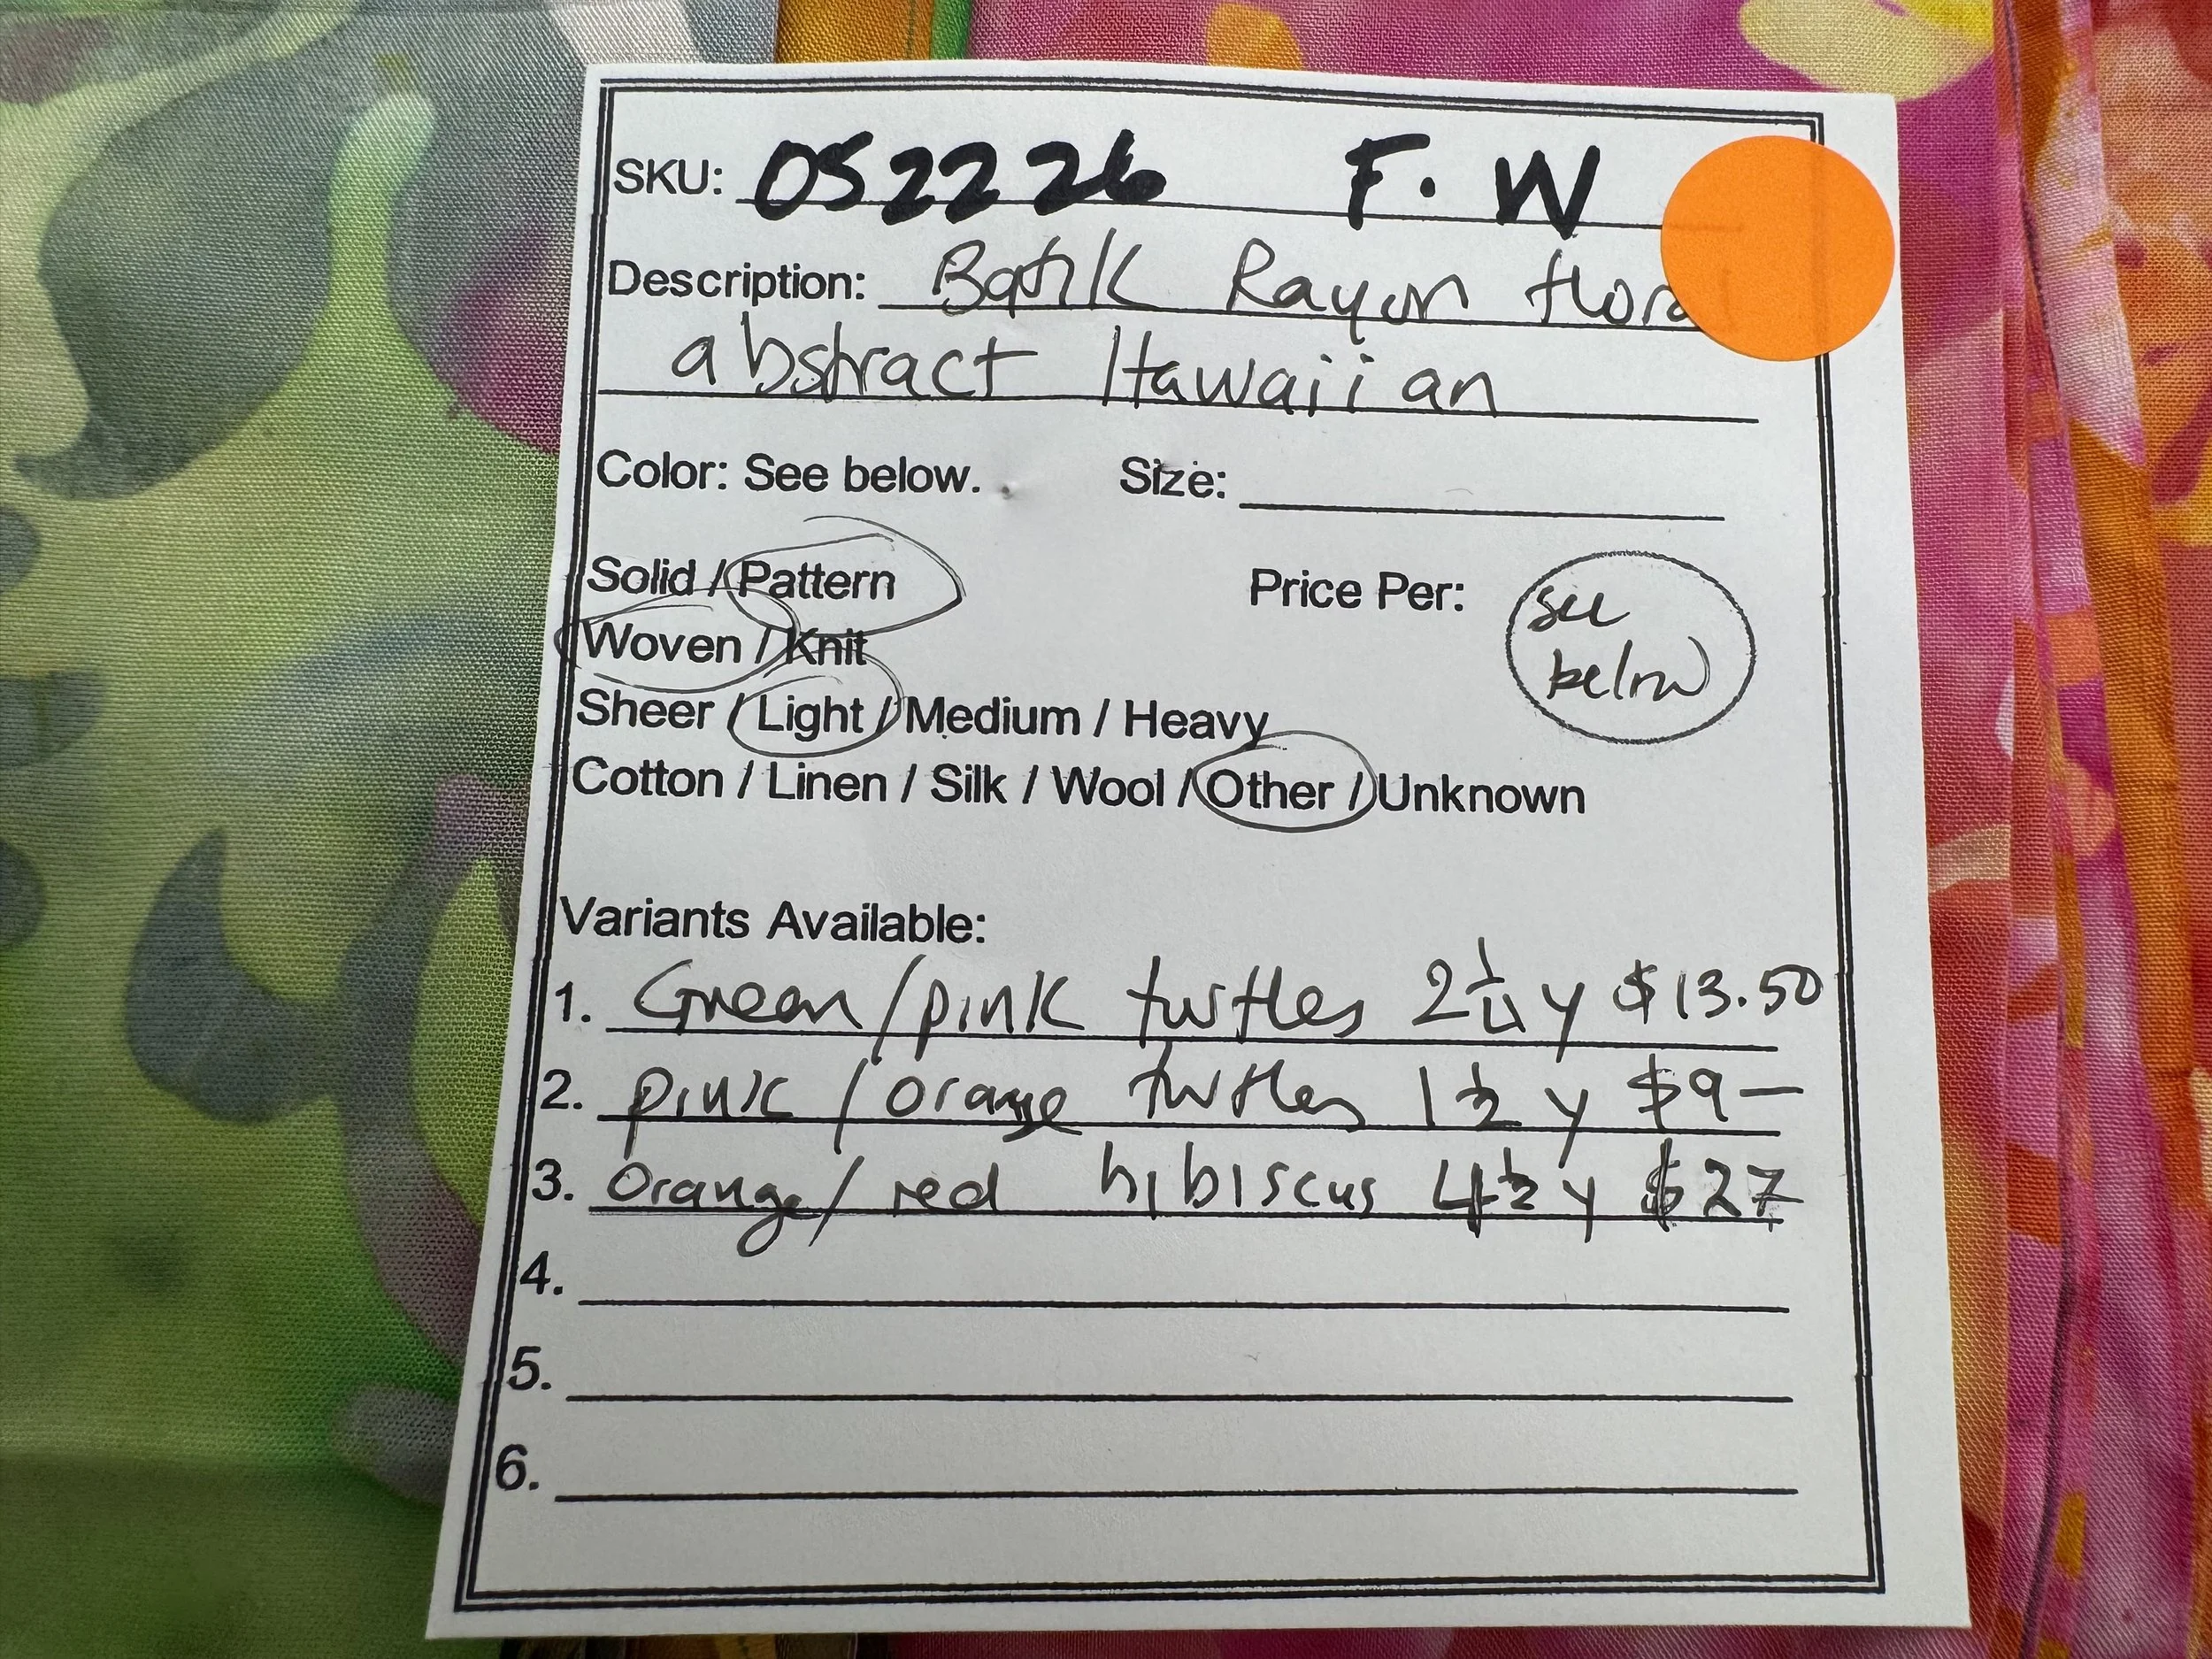 SKU: OS2226 F. W
Description: Batik Rayon flora
abstract Hawaiian
Color: See below. Size:
Solid / Pattern
Price Per: see below
Woven / Knit
Sheer / Light / Medium / Heavy
Cotton / Linen / Silk / Wool / Other / Unknown
Variants Available:
1. Green/pink turtles 2 1/4 y $13.50
2. pink / orange turtles 1 1/2 y $9—
3. Orange/ red hibiscus 4 1/2 y $27
4.
5.
6.